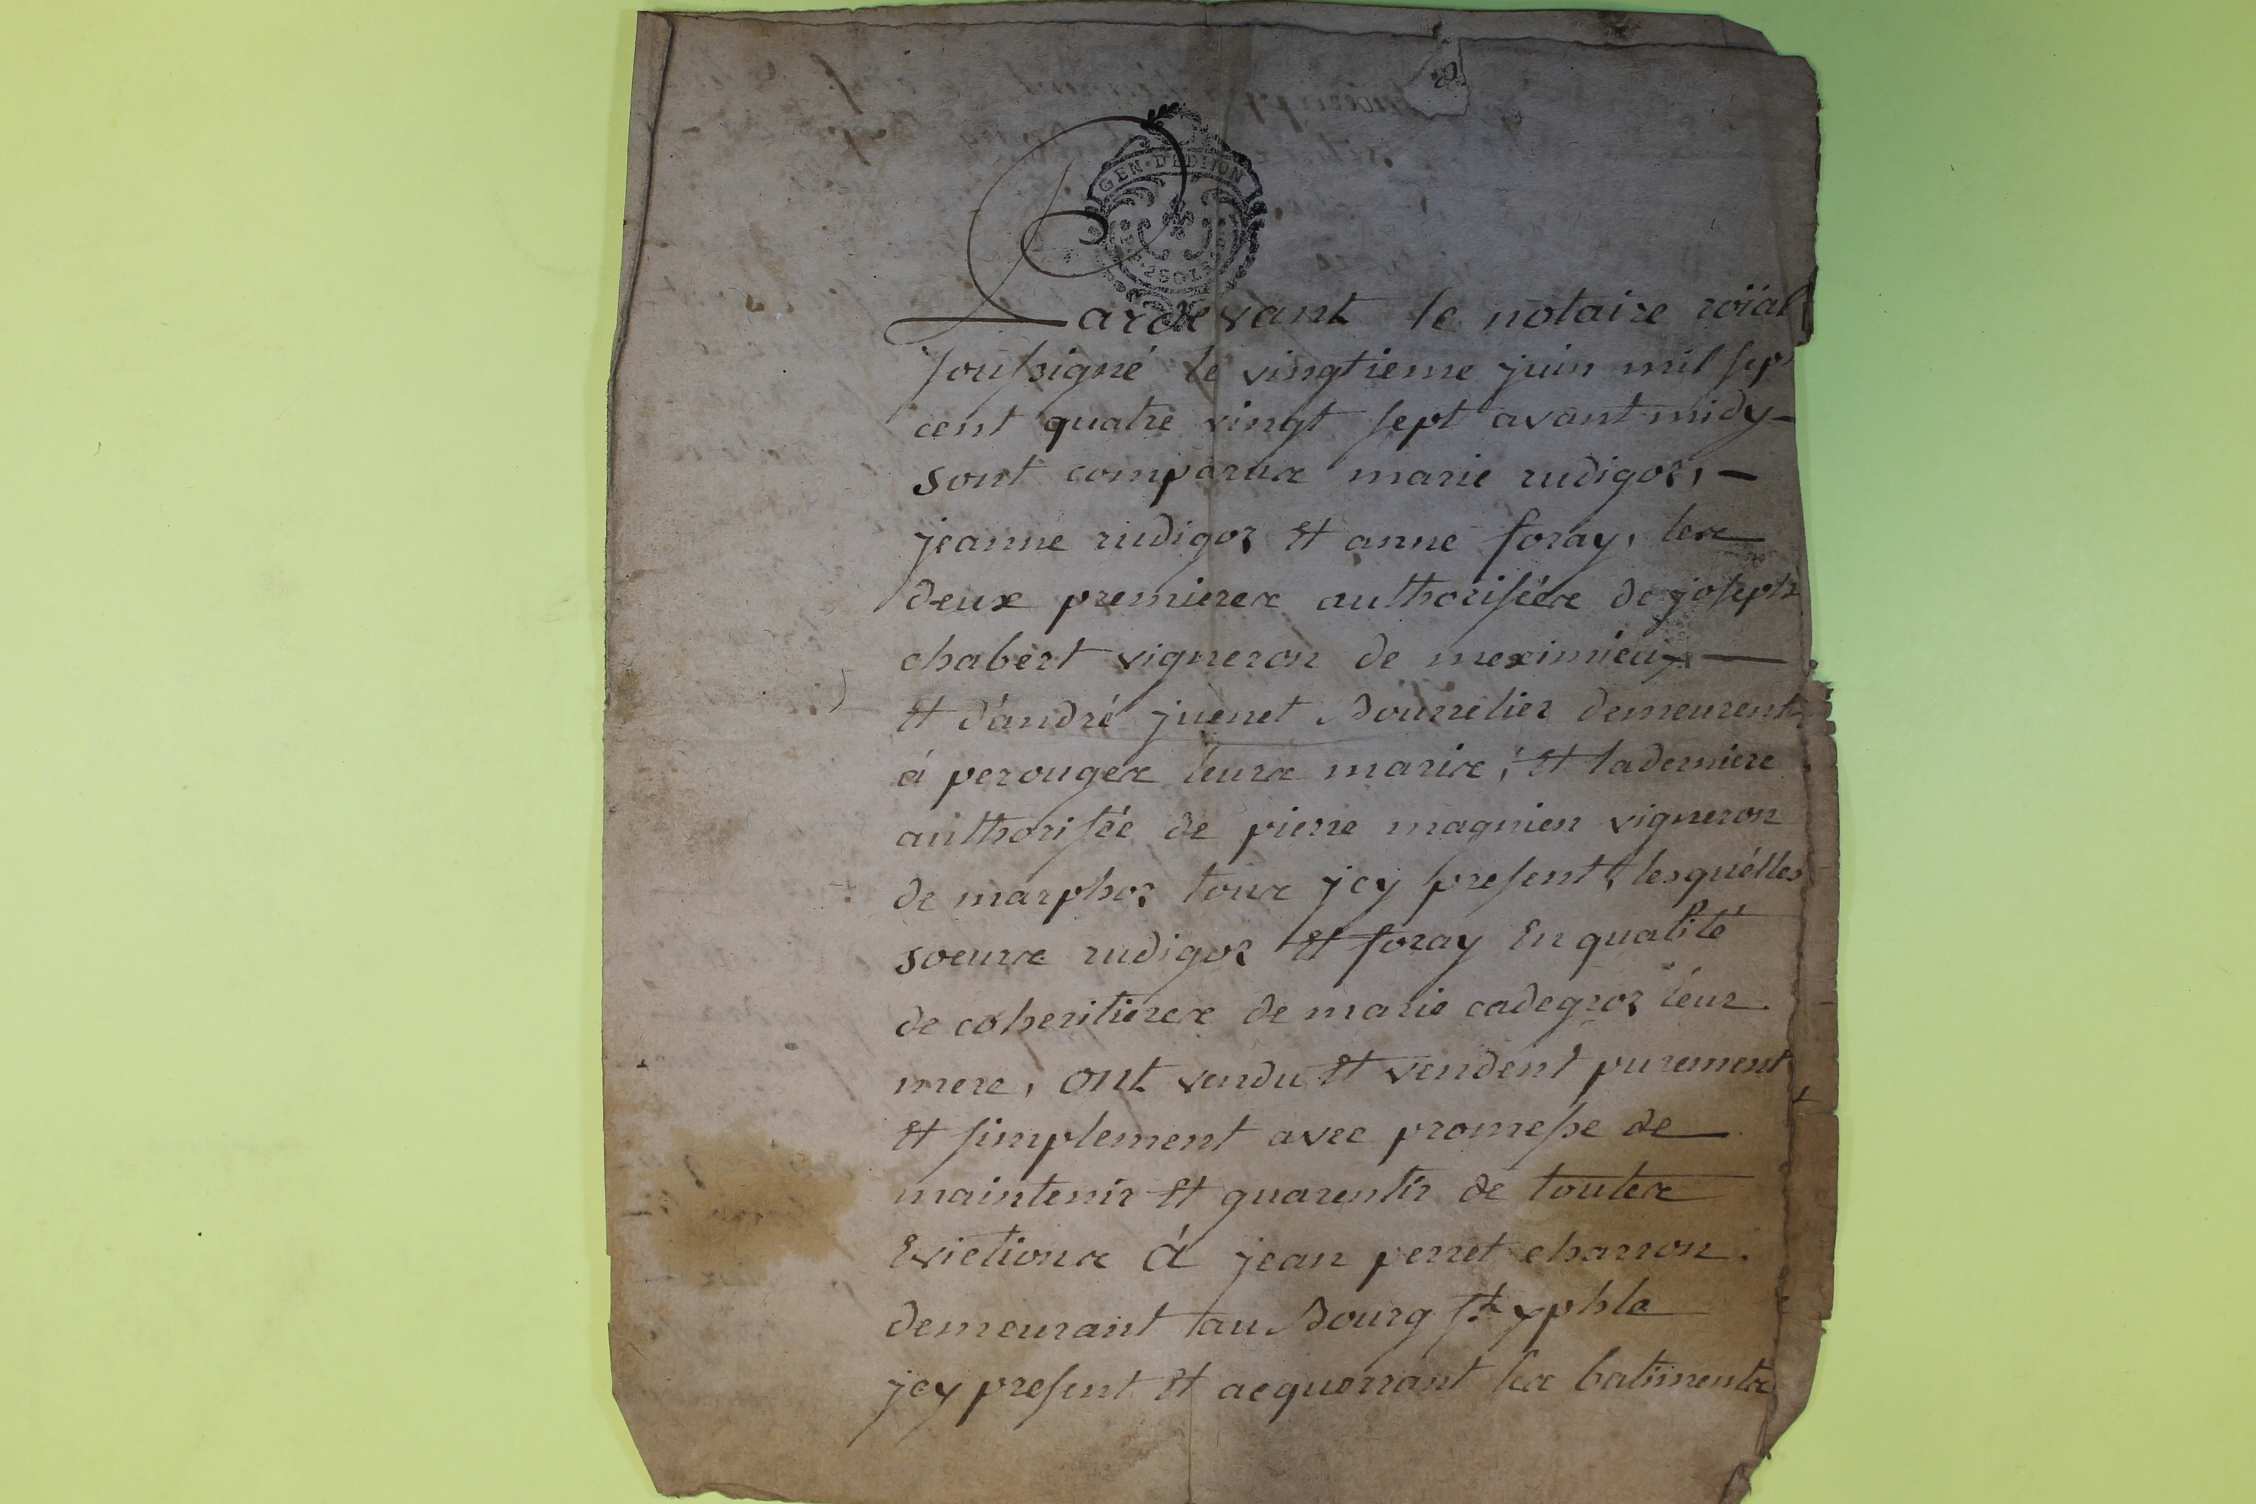 GEN. D'EDIJON
Pardevant le notaire roïal
soussigné le vingtieme juin mil sept
cent quatre vingt sept avant midy
sont comparus marie rudigoz,
jeanne rudigoz et anne foray, les
deux premieres authorisées de joseph
chabert vigneron de meximieux
et d'andré juenet Bourrelier demeurent
á perouges leurs maris, et la derniere
authorisée de pierre magnien vigneron
de marphoz tous jcy present, lesquélles
soeurs rudigoz et foray En qualité
de coheritieres de marie cadegroz leur
mere, ont vendu et vendent purement
et simplement avec promesse de
maintenir et guarentir de toutes
Evictions á jean perret charron
demeurant au Bourg St yphle
jcy present et acquerrant les batiments